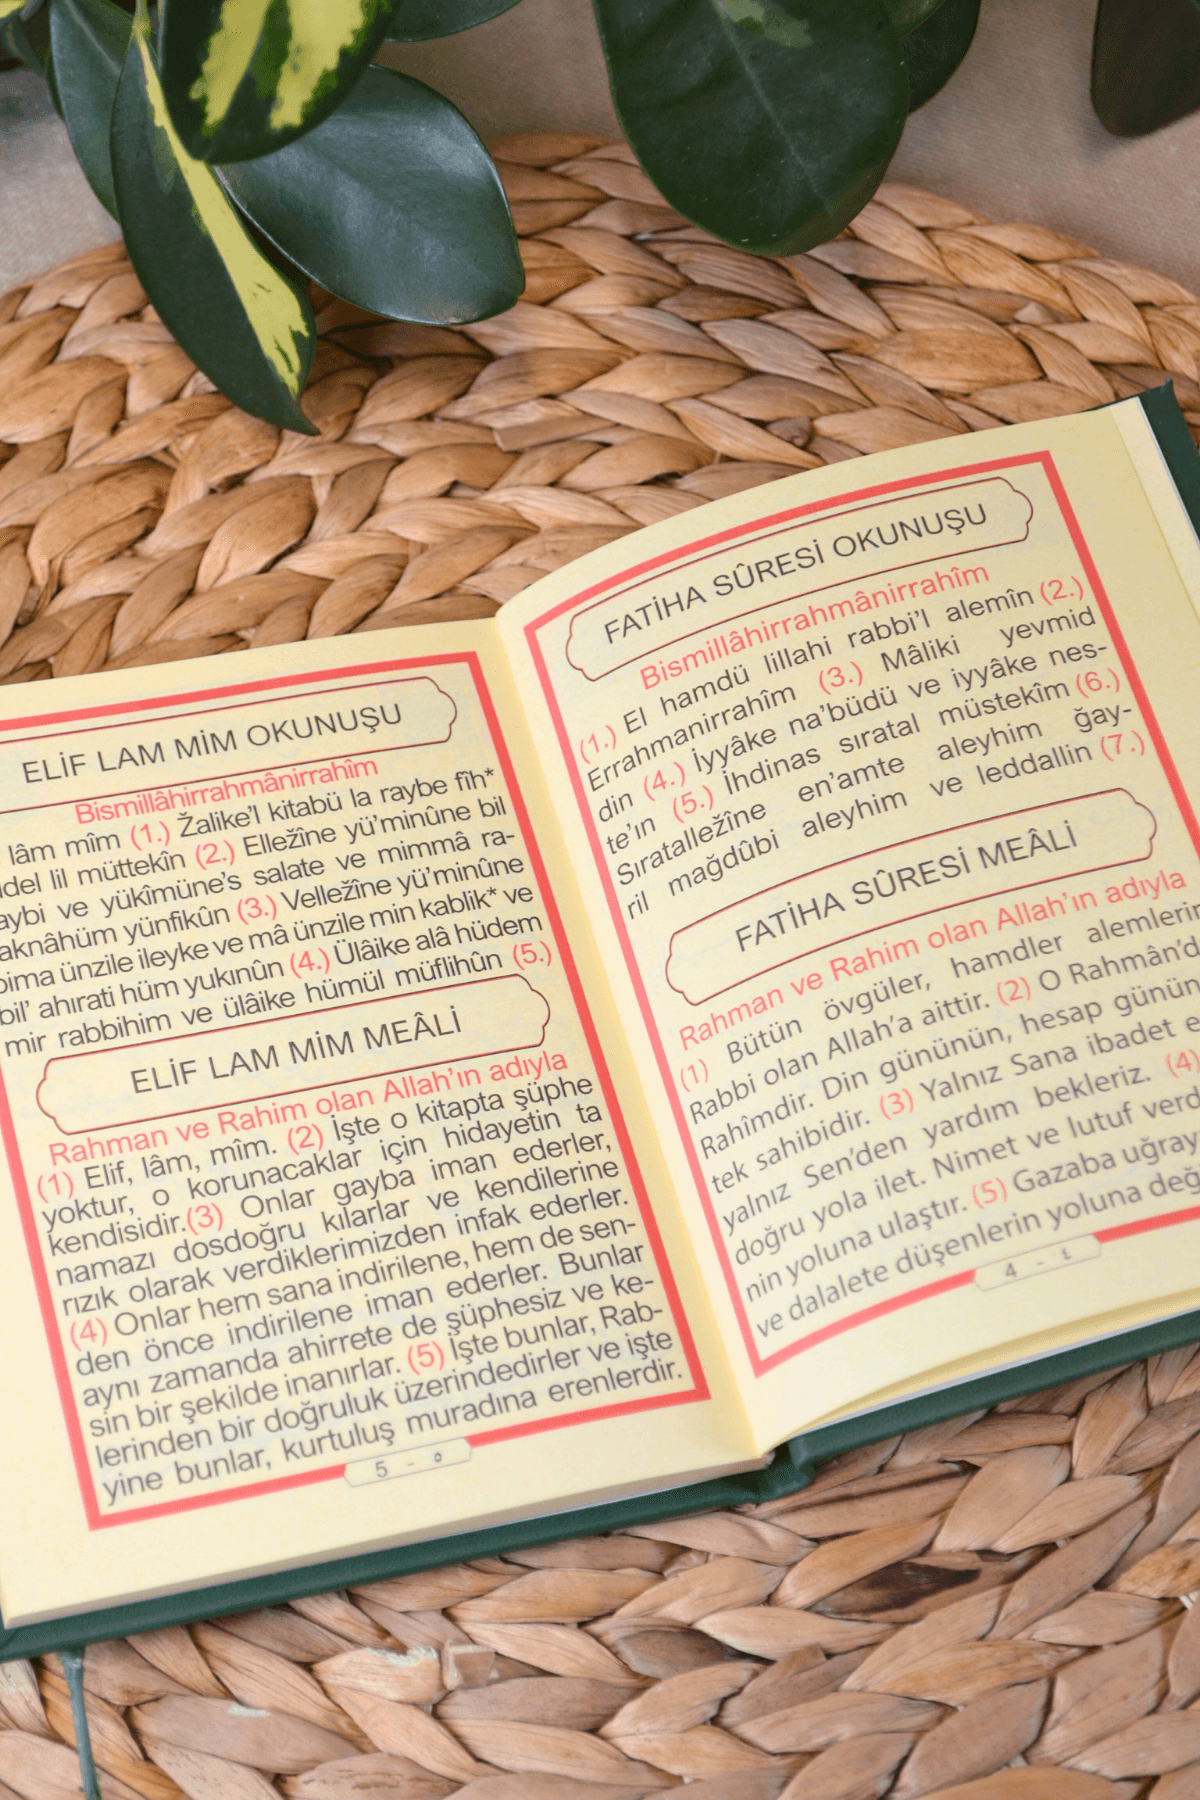 FATİHA SÛRESİ OKUNUŞU
Bismillâhirrahmânirrahîm
(1.) El hamdü lillahi rabbi'l alemîn (2.)
Errahmanirrahîm (3.) Mâliki yevmid
din (4.) İyyâke na'büdü ve iyyâke nes-
te'ın (5.) İhdinas sıratal müstekîm (6.)
Sıratalležîne en'amte aleyhim ğay-
ril mağdûbi aleyhim ve leddallin (7.)
FATİHA SÛRESİ MEÂLİ
Rahman ve Rahim olan Allah'ın adıyla
(1) Bütün övgüler, hamdler alemlerin
Rabbi olan Allah'a aittir. (2) O Rahmân'd
Rahîmdir. Din gününün, hesap günün
tek sahibidir. (3) Yalnız Sana ibadet e
yalnız Sen'den yardım bekleriz. (4)
doğru yola ilet. Nimet ve lutuf verd
nin yoluna ulaştır. (5) Gazaba uğray
ve dalalete düşenlerin yoluna değ
4 - ٤
ELİF LAM MİM OKUNUŞU
Bismillâhirrahmânirrahîm
lâm mîm (1.) Žalike'l kitabü la raybe fîh*
del lil müttekîn (2.) Elležîne yü'minûne bil
aybi ve yükîmüne's salate ve mimmâ ra-
aknâhüm yünfikûn (3.) Velležîne yü'minûne
bima ünzile ileyke ve mâ ünzile min kablik* ve
bil' ahırati hüm yukınûn (4.) Ülâike alâ hüdem
mir rabbihim ve ülâike hümül müflihûn (5.)
ELİF LAM MİM MEÂLİ
Rahman ve Rahim olan Allah'ın adıyla
(1) Elif, lâm, mîm. (2) İşte o kitapta şüphe
yoktur, o korunacaklar için hidayetin ta
kendisidir.(3) Onlar gayba iman ederler,
namazı dosdoğru kılarlar ve kendilerine
rızık olarak verdiklerimizden infak ederler.
(4) Onlar hem sana indirilene, hem de sen-
den önce indirilene iman ederler. Bunlar
aynı zamanda ahirrete de şüphesiz ve ke-
sin bir şekilde inanırlar. (5) İşte bunlar, Rab-
lerinden bir doğruluk üzerindedirler ve işte
yine bunlar, kurtuluş muradına erenlerdir.
5 - ٥